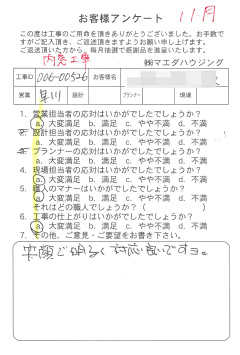 お客様アンケート 11月
この度は工事のご用命を頂きありがとうございました。お手数で
すがご記入頂き、ご返送頂きますようお願い申し上げます。
ご返送頂いた方から、毎月抽選で感謝品を進呈いたします。
内窓工事 ㈱マエダハウジング
工事ID 006-00526 お客様名
営業 早川 設計 プランナー 現場
1. 営業担当者の応対はいかがでしたでしょうか？
a. 大変満足 b. 満足 c. やや不満 d. 不満
2. 設計担当者の応対はいかがでしたでしょうか？
a. 大変満足 b. 満足 c. やや不満 d. 不満
3. プランナーの応対はいかがでしたでしょうか？
a. 大変満足 b. 満足 c. やや不満 d. 不満
4. 現場担当者の応対はいかがでしたでしょうか？
a. 大変満足 b. 満足 c. やや不満 d. 不満
5. 職人のマナーはいかがでしたでしょうか？
a. 大変満足 b. 満足 c. やや不満 d. 不満
それはどの職人でしょうか？（ ）
6. 工事の仕上がりはいかがでしたでしょうか？
a. 大変満足 b. 満足 c. やや不満 d. 不満
7. その他、ご意見・ご要望をお書き下さい。
笑顔で明るく対応良いですヨ。